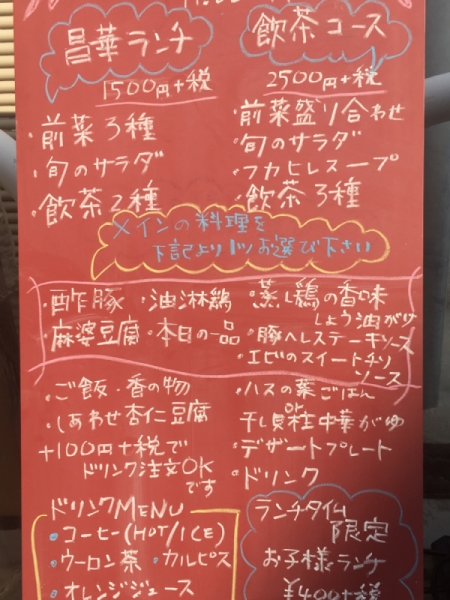 昌華ランチ
1500円+税
・前菜3種
・旬のサラダ
・飲茶2種
飲茶コース
2500円+税
・前菜盛り合わせ
・旬のサラダ
・フカヒレスープ
・飲茶3種
メインの料理を
下記より1ツお選び下さい
・酢豚・油淋鶏・蒸し鶏の香味
しょう油がけ
・麻婆豆腐・本日の一品・豚ヘレステーキソース
・エビのスイートチリ
ソース
・ご飯・香の物
・しあわせ杏仁豆腐
+100円+税で
ドリンク注文OK
です
・ハスの葉ごはん
or
干し貝柱中華がゆ
・デザートプレート
・ドリンク
ドリンクMENU
・コーヒー(HOT/ICE)
・ウーロン茶・カルピス
・オレンジジュース
ランチタイム
限定
お子様ランチ
¥400+税